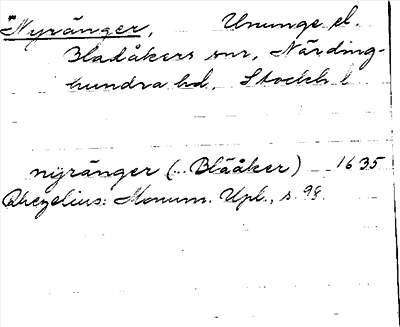 *Nyränger, Ununge el.
Bladåkers snr, Närding-
hundra hd, Stockh. l
nyränger (... Blååker) 1635
Rhezelius: Monum. Upl., s. 98.